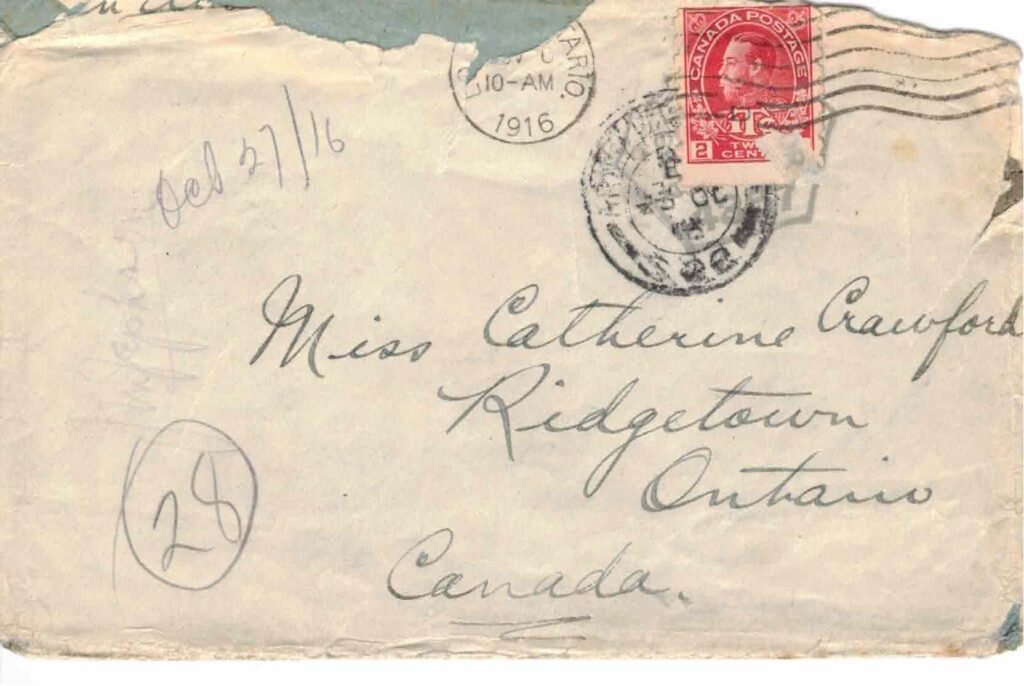 TARIO.
10-AM
1916
CANADA POSTAGE
2 TW
CEN
Oct 27/16
S 22
Miss Catherine Crawford
Ridgetown
Ontario
28
Canada.